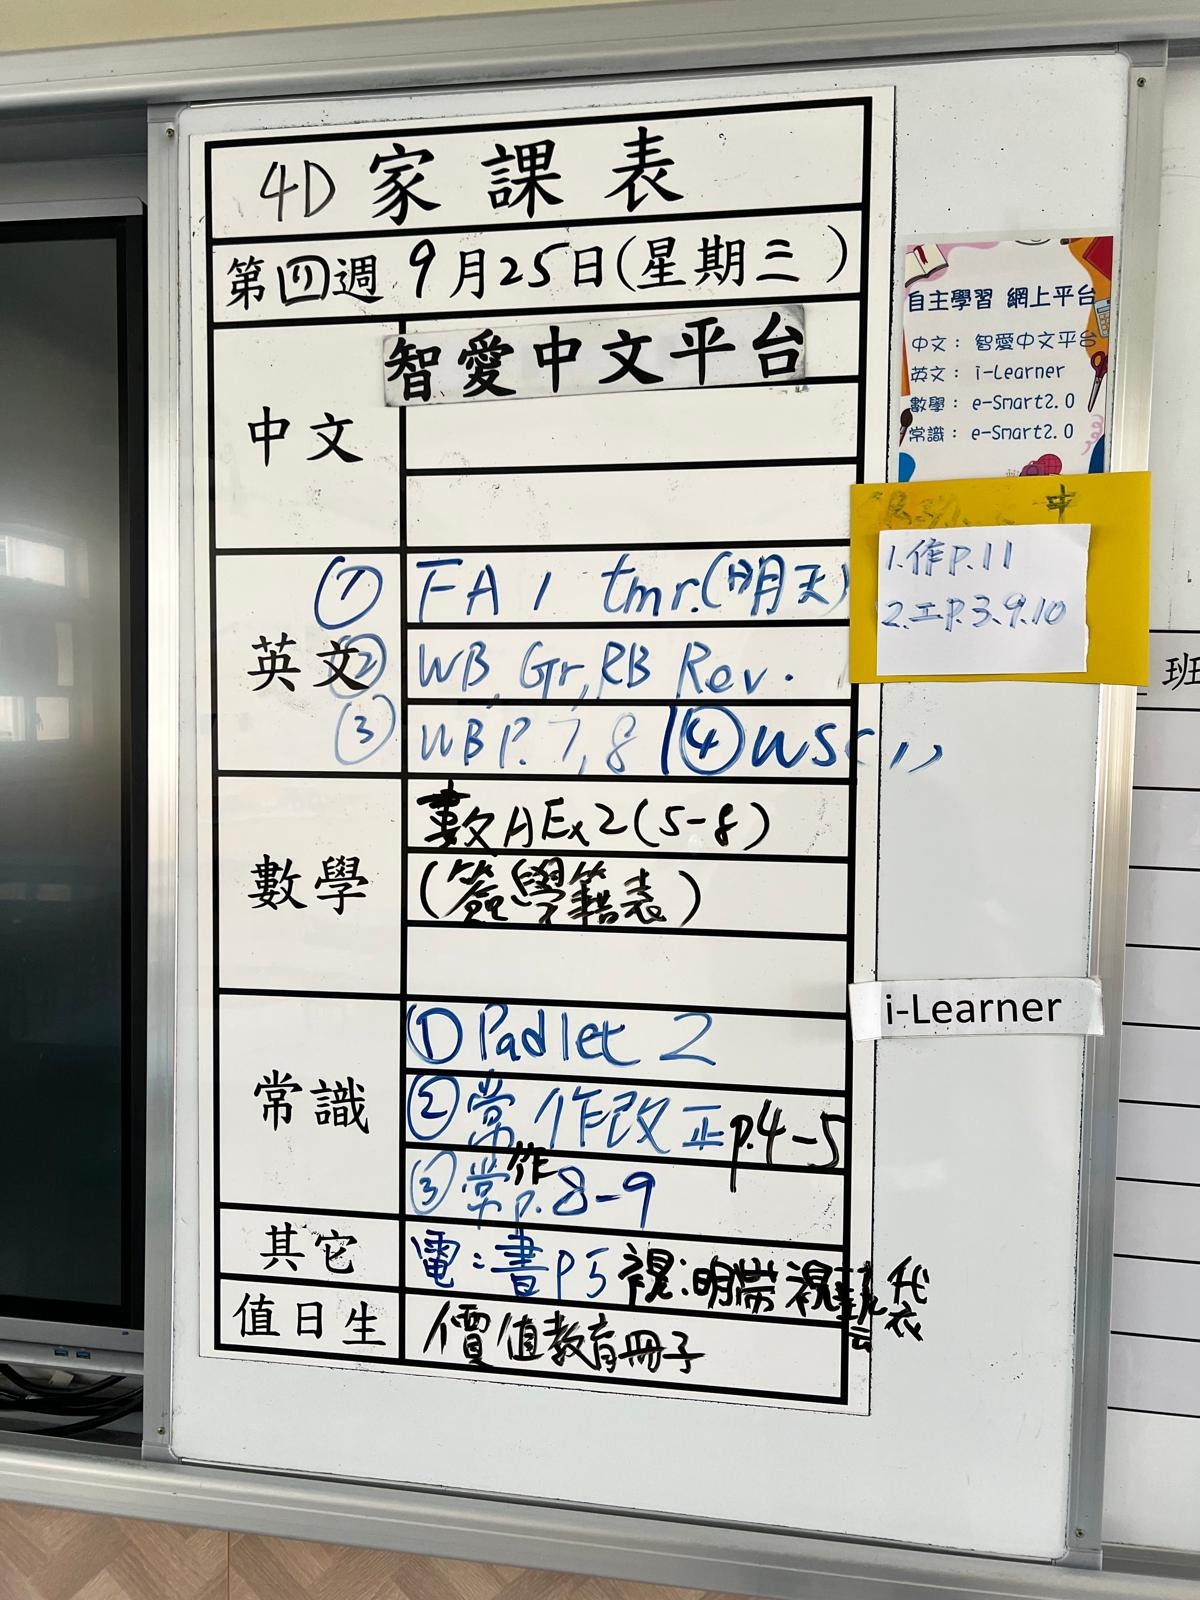 4D 家課表
第四週 9月25日(星期三)
中文
智愛中文平台
英文
① FA 1 tmr.(明天)
② WB, Gr, RB Rev.
③ WB P. 7, 8 ④ WS(1)
數學
數AEx2(5-8)
(簽學籍表)
常識
① Padlet 2
② 常作改正p.4-5
③ 常作p.8-9
其它
電:書P5 視:明帶視藝代
值日生
價值教育冊子
自主學習 網上平台
中文: 智愛中文平台
英文: i-Learner
數學: e-Smart2.0
常識: e-Smart2.0
中
1.作p.11
2.工p.3.9.10
班
i-Learner